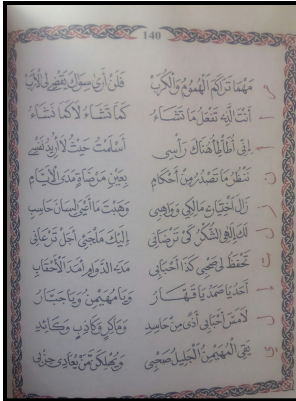 140
مَهْمَا تَرَاكَمَ الْهُمُومُ وَالْكُرَبْ فَلَنْ أَرَى سِوَاكَ يَقْضِي لِي الْأَرَبْ
أَنْتَ الَّذِي تَفْعَلُ مَا تَشَاءُ كَمَا تَشَاءُ لَا كَمَا نَشَاءُ
إِنِّي أُطَأْطِأُ هُنَاكَ رَأْسِي أَسْلَمْتُ حَيْثُ لَا أُرِيدُ نَفْسِي
نَنْظُرُ مَا تَصْدُرُ مِنْ أَحْكَامِ بِعَيْنِ مَرْضَاةٍ مَدَى الْأَيَّامِ
زَالَ اخْتِيَارِي مَالِكِي وَوَاهِبِي وَهَبْتَ مَا أَعْيَى لِسَانَ حَاسِبِ
لَكَ إِلَهِي الشُّكْرُ كَيْ تَرْضَانِي إِلَيْكَ مَلْجَئِي أَجَلْ تَرْعَانِي
تَحْفَظُ لِي صَحْبِي كَذَا أَحْبَابِي مَدَى الدَّوَامِ أَمَدَ الْأَحْقَابِ
أَحَدُ يَا صَمَدُ يَا قَهَّارُ وَيَا مُهَيْمِنُ وَيَا جَبَّارُ
لَا مَسَّ أَحْبَابِي أَذًى مِنْ حَاسِدِ وَمَاكِرٍ وَكَاذِبٍ وَكَائِدِ
يَقِي الْمُهَيْمِنُ الْجَلِيلُ صَحْبِي وَيُهْلِكَنْ مَنْ يُعَادِي حِزْبِي